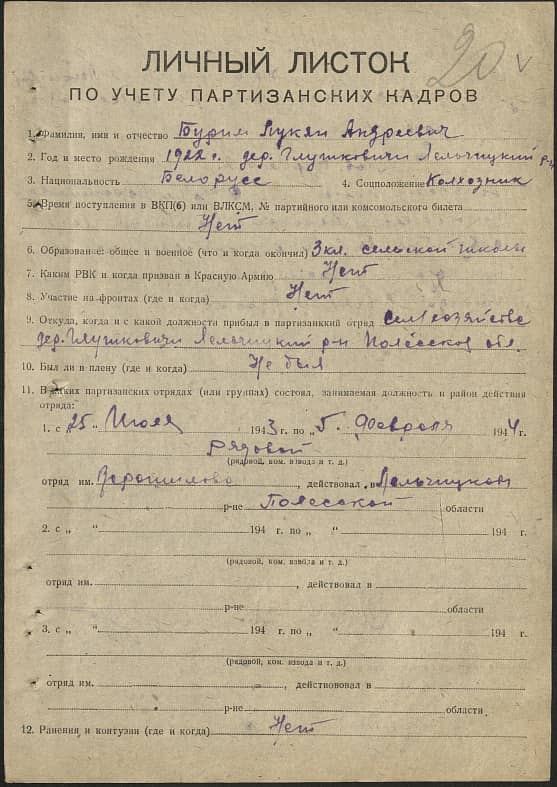 20 V
ЛИЧНЫЙ ЛИСТОК
ПО УЧЕТУ ПАРТИЗАНСКИХ КАДРОВ
1. Фамилия, имя и отчество Бурим Лукян Андреевич
2. Год и место рождения 1922 г. дер. Глушковичи Лельчицкий р-н
3. Национальность Белорусс 4. Соцположение Колхозник
5. Время поступления в ВКП(б) или ВЛКСМ, № партийного или комсомольского билета
Нет
6. Образование: общее и военное (что и когда окончил) 3 кл. сельской школы
7. Каким РВК и когда призван в Красную Армию Нет
8. Участие на фронтах (где и когда) Нет
9. Откуда, когда и с какой должности прибыл в партизанский отряд сел хозяйства
дер. Глушковичи Лельчицкий р-н Полесской обл.
10. Был ли в плену (где и когда) Не был
11. В каких партизанских отрядах (или группах) состоял, занимаемая должность и район действия
отряда:
1. с „25 “ Июля 1943 г. по „5. Февраля 1944 г.
Рядовой
(рядовой, ком. взвода и т. д.)
отряд им. Ворошилова, действовал в Лельчицком
р-не Полесской области
2. с „ “ 194 г. по „ “ 194 г.
(рядовой, ком. взвода и т. д.)
отряд им. , действовал в
р-не области
3. с „ “ 194 г. по „ “ 194 г.
(рядовой, ком. взвода и т. д.)
отряд им. , действовал в
р-не области
12. Ранения и контузии (где и когда) Нет